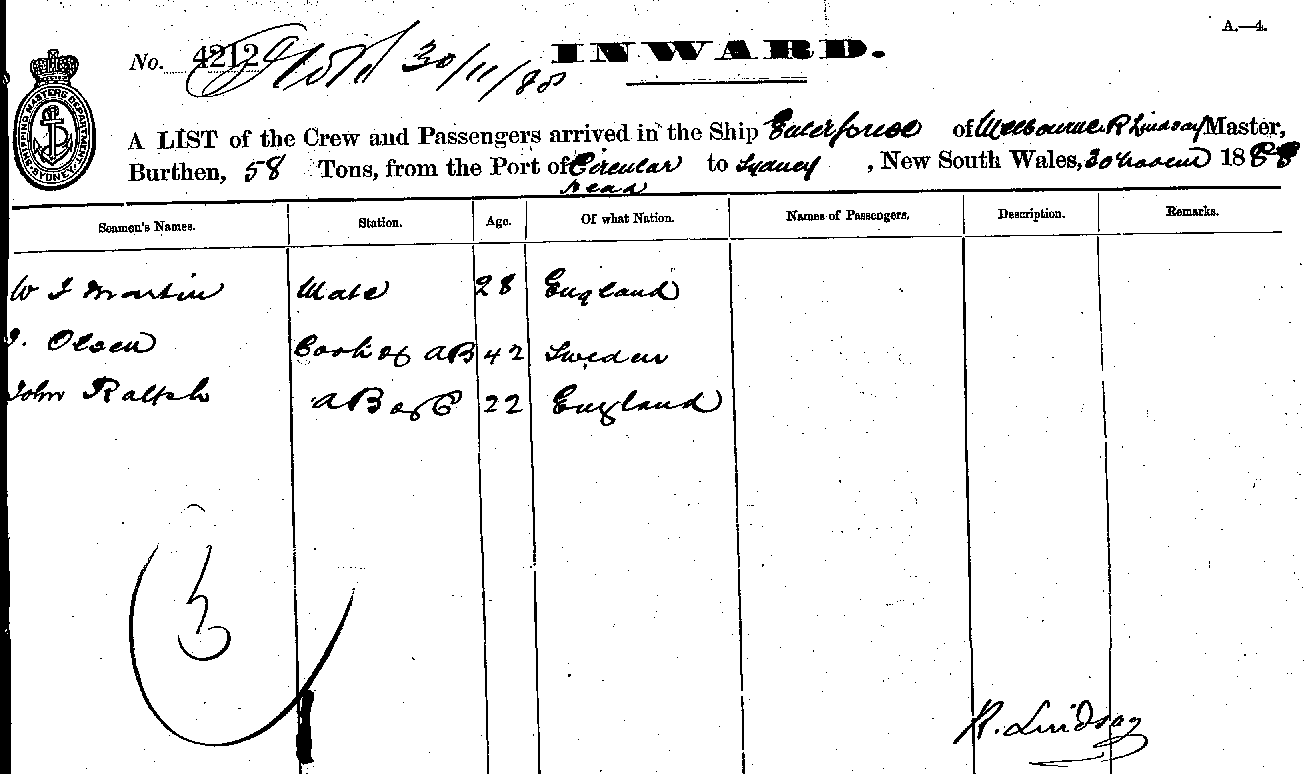 A.—4.
No. 4212 30/11/88 INWARD.
SHIPPING MASTERS DEPARTMENT SYDNEY
A LIST of the Crew and Passengers arrived in the Ship Enterprise of Melbourne R Lindsay Master,
Burthen, 58 Tons, from the Port of Circular Head to Sydney, New South Wales, 30 Novem 1888
Seamen's Names. Station. Age. Of what Nation. Names of Passengers. Description. Remarks.
W J Martin Mate 28 England
J. Olsen Cook & AB 42 Sweden
John Ralph AB 22 England
3
R. Lindsay